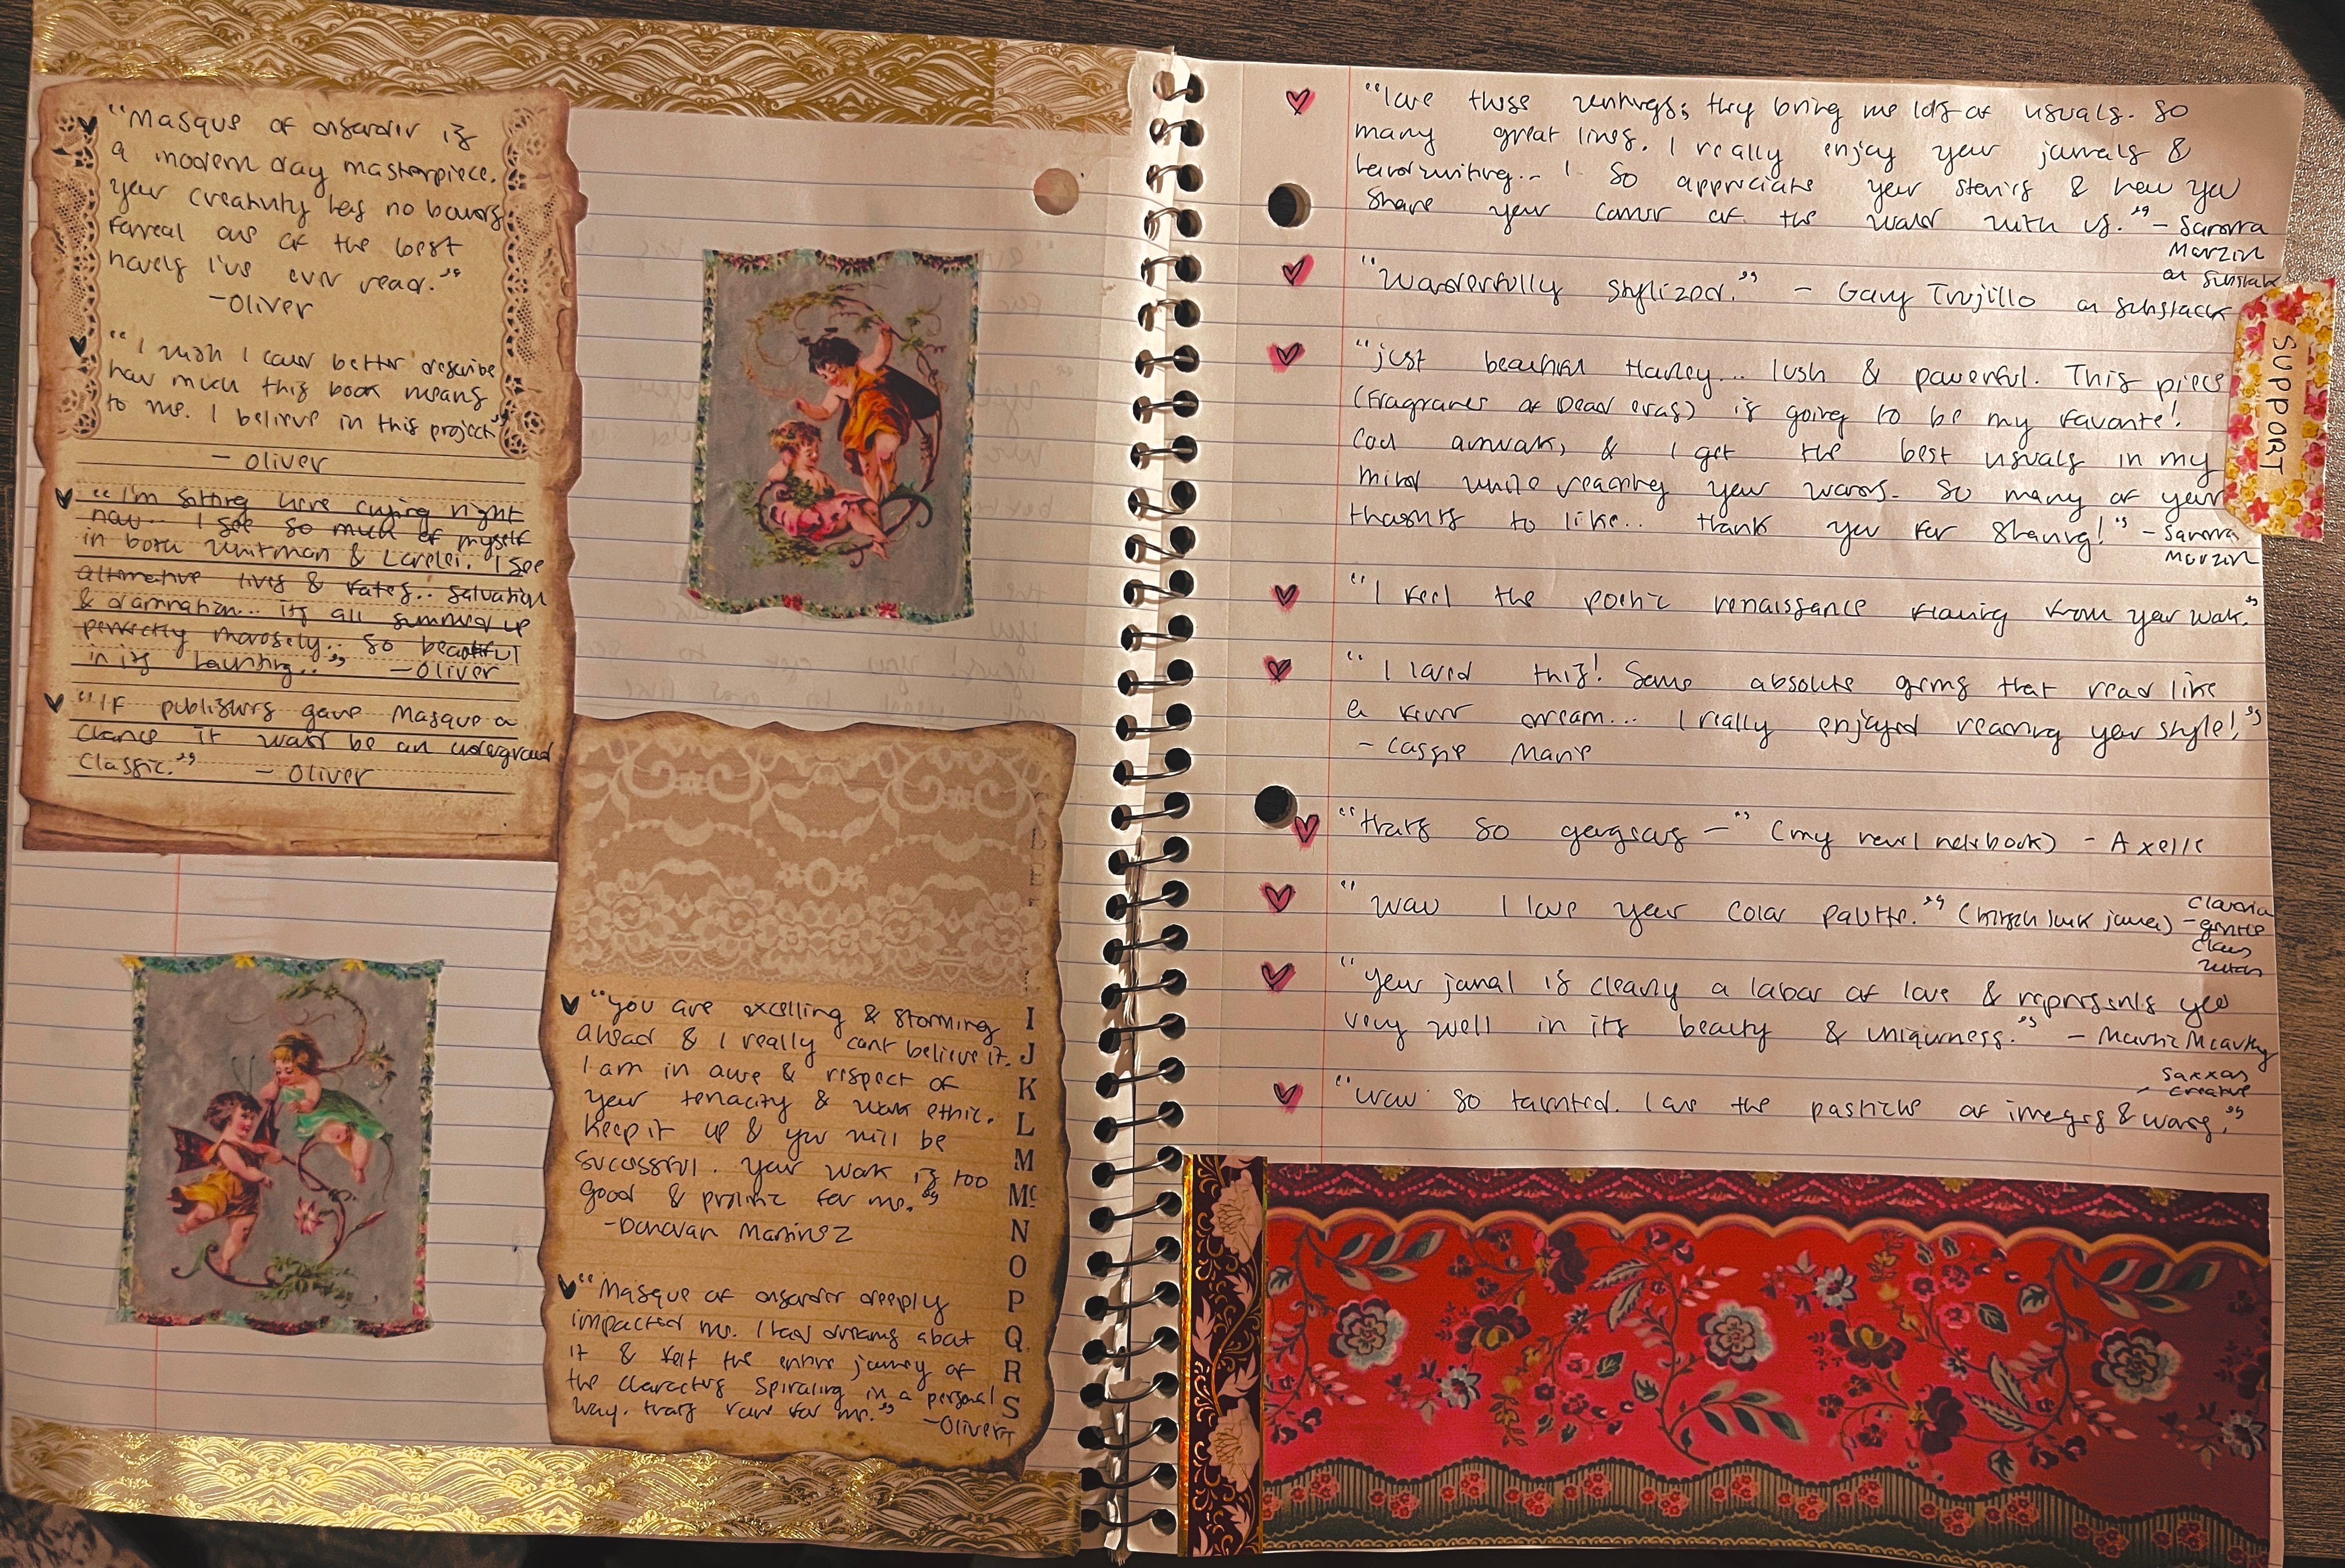 "Masque of disorder is
a modern day masterpiece.
your creativity has no bounds
forreal one of the best
novels I've ever read."
-Oliver
"I wish I could better describe
how much this book means
to me. I believe in this project"
- Oliver
"I'm sitting here crying right
now.. I see so much of myself
in both Whitman & Lorelei. I see
alternative lives & fates.. salvation
& damnation.. its all summed up
perfectly morosely.. so beautiful
in its haunting.." -Oliver
"If publishers gave Masque a
chance it would be an underground
classic." - Oliver
"you are excelling & storming
ahead & I really cant believe it.
I am in awe & respect of
your tenacity & work ethic.
keep it up & you will be
successful. your work is too
good & prolific for me."
-Donovan Martinez
"Masque of disorder deeply
impacted me. I had dreams about
it & felt the entire journey of
the characters spiraling in a personal
way. thats rare for me."
-Oliver
I
J
K
L
M
Mc
N
O
P
Q
R
S
T
"love these writings; they bring me lots of visuals. so
many great lines. I really enjoy your journals &
handwriting.. I so appreciate your stories & how you
share your corner of the world with us." - Sandra
Marzin
on substack
"Wonderfully stylized." - Gary Trujillo on substack
SUPPORT
"just beautiful Harley... lush & powerful. This piece
(Fragrances of Dead eras) is going to be my favorite!
Cool artwork, & I get the best visuals in my
mind while reading your words. So many of your
thoughts to like.. thank you for sharing!" - Sandra
Marzin
"I feel the poetic renaissance flowing from your work."
"I loved this! Some absolute gems that read like
a fever dream... I really enjoyed reading your style!"
- Cassie Marie
"thats so gorgeous -" (my novel notebook) - Axelle
"wow I love your color palette." (hirsch junk journal) - Claudia
gentle
claws
"your journal is clearly a labor of love & represents you
very well in its beauty & uniqueness." -
Saxxon
- creative
"wow so talented. love the pastiche of images & words."